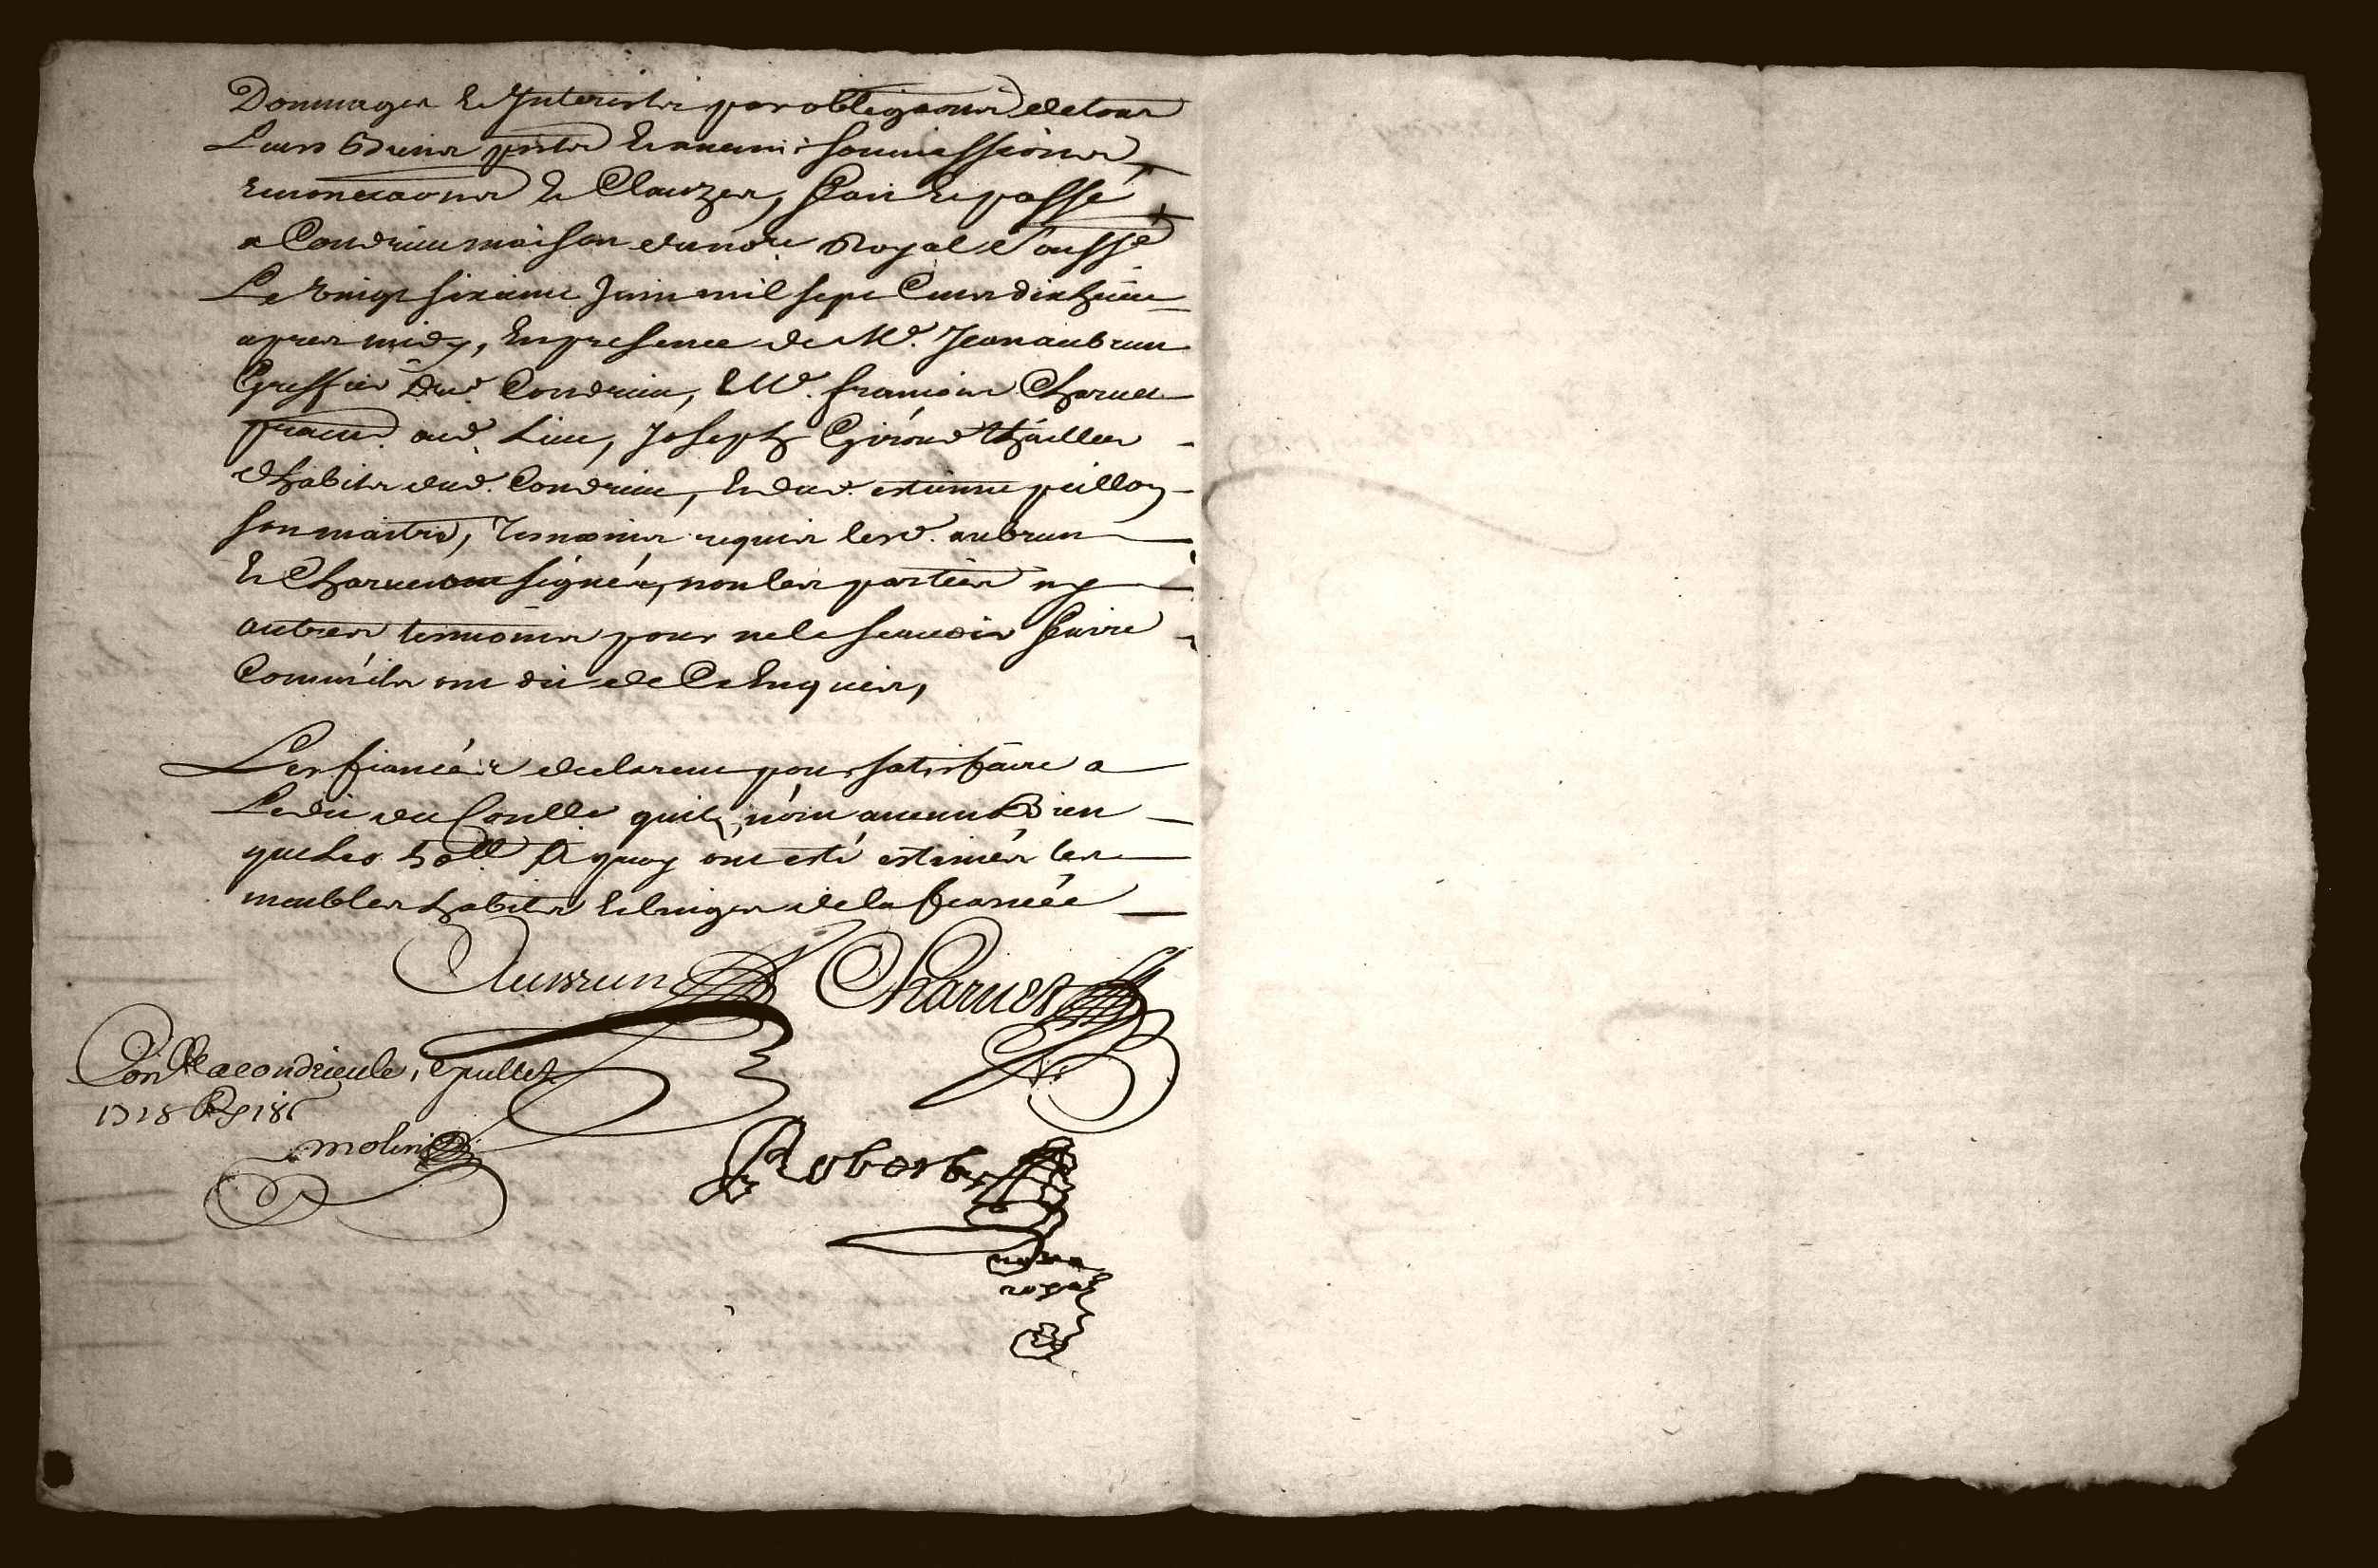 Dommages & Interests par obligaons de tous
Leurs biens pnts & avenir soumissions,
renonciaons & Clauzes, fait & passé
a Condrieu maison du no.re Royal soussé
Le vingt sixieme Juin mil sept Cens dixhuit
apres midy, en presence de Me. Jean aubrun
Greffier dud. Condrieu, & Me. françois Charvet
praticn. aud. Lieu, Joseph Giroud tailleur
habitt. dud. Condrieu, & dud. estienne peillon
son maitre, Temoins requis lesd. aubrun
& Charvet ont signés, non les parties ny
autres temoins pour ne le scavoir faire
Comm'ils ont dit de Ce Enquis,
Les fiancés declarent pour satisfaire a
L'edit du Conlle quils n'ont aucun Bien
que Les 50ll. A quoy ont esté estimés les
meubles habits & linges de la fiancée
Aubrun Charvet
Conlle a condrieu le, juillet
1718 R 18s
molin
Robert
no.re
royal